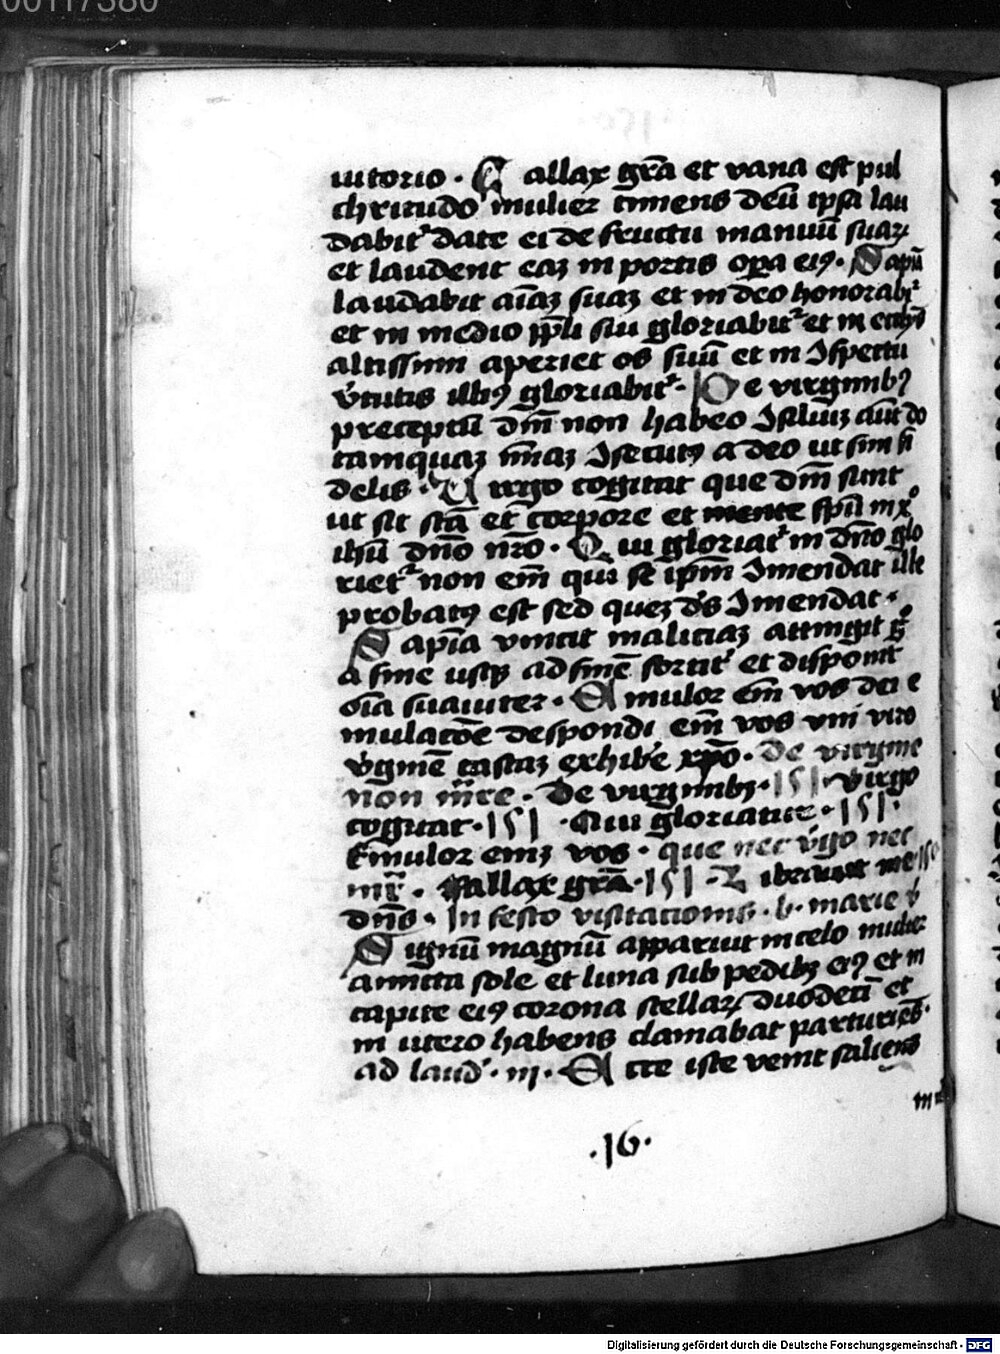 00117380
iutorio · Fallax gr̄a et vana est pul
chritudo mulier timens deū ipsa lau
dabit᷑ date ei de fructu manuū suaꝝ
et laudent eaꝫ in portis oꝑa eiꝰ · Sapiā
laudabit aīaꝫ suaꝫ et in deo honorabit᷑
et in medio ppl̄i sui gloriabit᷑ et in
altissimi aperiet os suū et in ꝯspectu
v̓tutis illiꝰ gloriabit᷑ · De virginibꝰ
preceptū dn̄i non habeo ꝯsiliuꝫ aūt do
tamquaꝫ mīaꝫ ꝯsecutꝰ a deo ut sim fi
delis · Virgo cogitat que dn̄i sunt
ut sit sc̄a et corpore et mente spū in xͦ
ihū dn̄o nr̄o · Qui gloriat᷑ in dn̄o glo
riet᷑ non em̄ qui se ip̄m ꝯmendat ille
probatꝰ est sed queꝫ dˢ ꝯmendat ·
Sapīa vincit maliciaꝫ attingit gͦ
a fine usqꝫ ad finē fortit᷑ et disponit
oīa suauiter · Emulor em̄ vos dei e
mulacōe despondi em̄ vos vni viro
v̓ginē castaꝫ exhibe̓ xpō · De virgine
non mr̄e · De virginibꝫ · 151 · Virgo
cogitat · 151 · Qui gloriatur · 151 ·
Emulor enīꝫ vos · que nec v̓go nec
mr̄ · Fallax gr̄a · 151 · Liberauit me 150
dn̄s · In festo visitacionis · b · marie v̓
Signū magnū apparuit in celo mulier
amicta sole et luna sub pedibꝫ eiꝰ et in
capite eiꝰ corona stellaꝝ duodecī et
in utero habens clamabat parturiēs ·
ad laud᷑ · m · Ecce iste venit saliens
· 16 ·
Digitalisierung gefördert durch die Deutsche Forschungsgemeinschaft - DFG